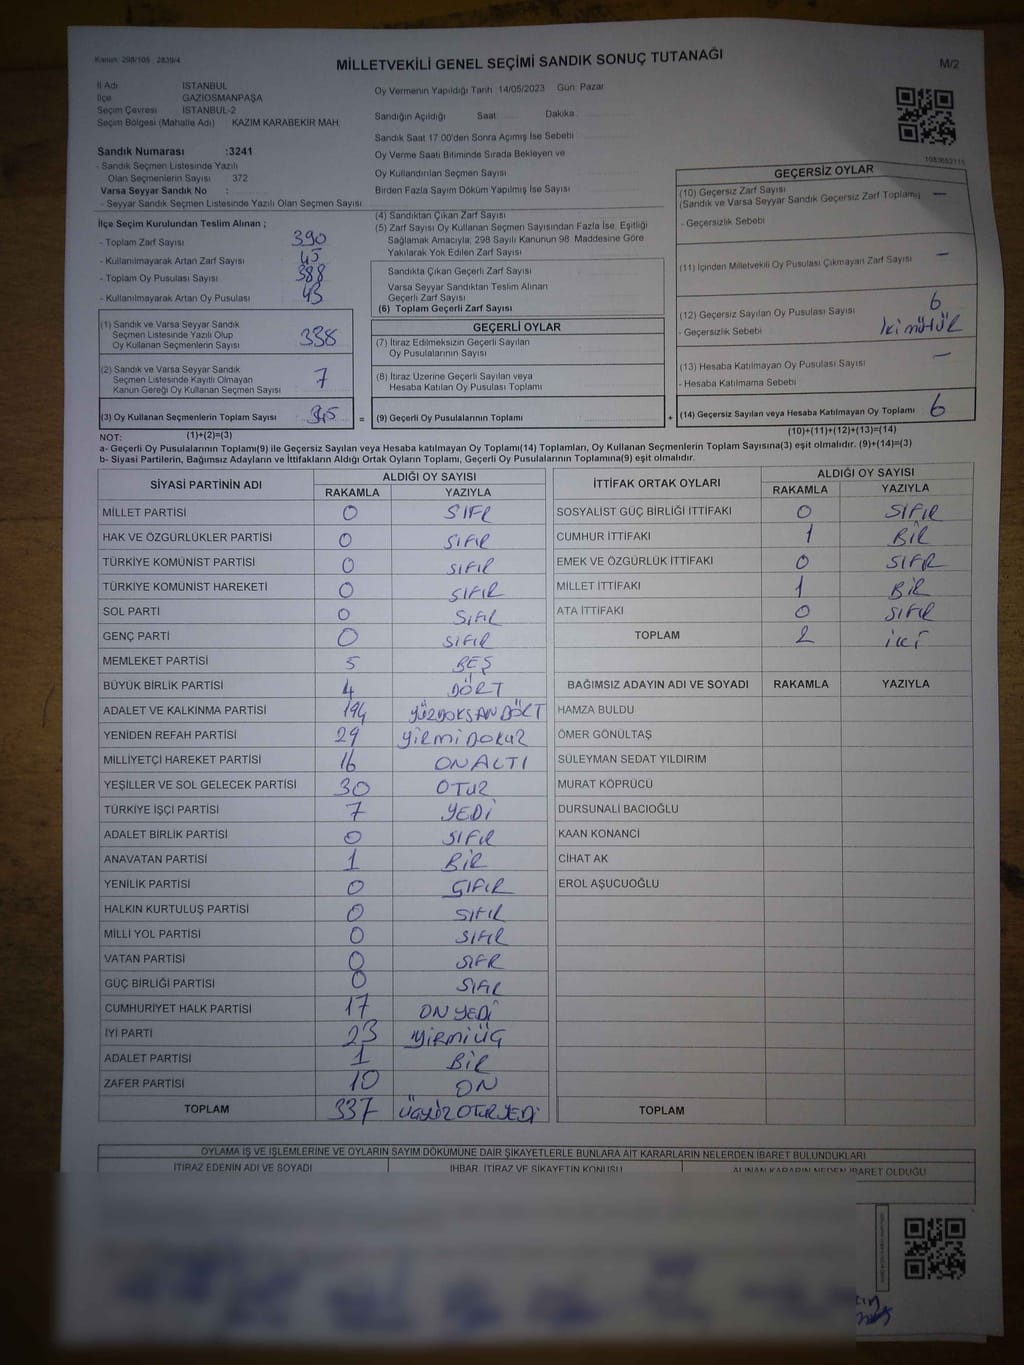 Kanun: 298/105 , 2839/4
MİLLETVEKİLİ GENEL SEÇİMİ SANDIK SONUÇ TUTANAĞI
M/2
İl Adı İSTANBUL
İlçe GAZİOSMANPAŞA
Seçim Çevresi İSTANBUL-2
Seçim Bölgesi (Mahalle Adı) KAZIM KARABEKİR MAH.
Sandık Numarası :3241
- Sandık Seçmen Listesinde Yazılı
Olan Seçmenlerin Sayısı : 372
Varsa Seyyar Sandık No :
- Seyyar Sandık Seçmen Listesinde Yazılı Olan Seçmen Sayısı
Oy Vermenin Yapıldığı Tarih 14/05/2023 Gün: Pazar
Sandığın Açıldığı Saat Dakika
Sandık Saat 17.00'den Sonra Açılmış İse Sebebi
Oy Verme Saati Bitiminde Sırada Bekleyen ve
Oy Kullandırılan Seçmen Sayısı
Birden Fazla Sayım Döküm Yapılmış İse Sayısı
1083652115
İlçe Seçim Kurulundan Teslim Alınan ;
- Toplam Zarf Sayısı 390
- Kullanılmayarak Artan Zarf Sayısı 45
- Toplam Oy Pusulası Sayısı 388
- Kullanılmayarak Artan Oy Pusulası 43
(1) Sandık ve Varsa Seyyar Sandık
Seçmen Listesinde Yazılı Olup
Oy Kullanan Seçmenlerin Sayısı 338
(2) Sandık ve Varsa Seyyar Sandık
Seçmen Listesinde Kayıtlı Olmayan
Kanun Gereği Oy Kullanan Seçmen Sayısı 7
(3) Oy Kullanan Seçmenlerin Toplam Sayısı 345 =
(1)+(2)=(3)
(4) Sandıktan Çıkan Zarf Sayısı
(5) Zarf Sayısı Oy Kullanan Seçmen Sayısından Fazla İse, Eşitliği
Sağlamak Amacıyla; 298 Sayılı Kanunun 98. Maddesine Göre
Yakılarak Yok Edilen Zarf Sayısı
Sandıkta Çıkan Geçerli Zarf Sayısı
Varsa Seyyar Sandıktan Teslim Alınan
Geçerli Zarf Sayısı
(6) Toplam Geçerli Zarf Sayısı
GEÇERLİ OYLAR
(7) İtiraz Edilmeksizin Geçerli Sayılan
Oy Pusulalarının Sayısı
(8) İtiraz Üzerine Geçerli Sayılan veya
Hesaba Katılan Oy Pusulası Toplamı
(9) Geçerli Oy Pusulalarının Toplamı +
GEÇERSİZ OYLAR
(10) Geçersiz Zarf Sayısı
(Sandık ve Varsa Seyyar Sandık Geçersiz Zarf Toplamı) —
- Geçersizlik Sebebi
(11) İçinden Milletvekili Oy Pusulası Çıkmayan Zarf Sayısı —
(12) Geçersiz Sayılan Oy Pusulası Sayısı 6
- Geçersizlik Sebebi İki mühür
(13) Hesaba Katılmayan Oy Pusulası Sayısı —
- Hesaba Katılmama Sebebi
(14) Geçersiz Sayılan veya Hesaba Katılmayan Oy Toplamı 6
(10)+(11)+(12)+(13)=(14)
NOT:
a- Geçerli Oy Pusulalarının Toplamı(9) ile Geçersiz Sayılan veya Hesaba katılmayan Oy Toplamı(14) Toplamları, Oy Kullanan Seçmenlerin Toplam Sayısına(3) eşit olmalıdır. (9)+(14)=(3)
b- Siyasi Partilerin, Bağımsız Adayların ve İttifakların Aldığı Ortak Oyların Toplamı, Geçerli Oy Pusulalarının Toplamına(9) eşit olmalıdır.
SİYASİ PARTİNİN ADI ALDIĞI OY SAYISI
RAKAMLA YAZIYLA
MİLLET PARTİSİ 0 SIFR
HAK VE ÖZGÜRLÜKLER PARTİSİ 0 SIFIR
TÜRKİYE KOMÜNİST PARTİSİ 0 SIFIR
TÜRKİYE KOMÜNİST HAREKETİ 0 SIFIR
SOL PARTİ 0 SIFIR
GENÇ PARTİ 0 SIFIR
MEMLEKET PARTİSİ 5 BEŞ
BÜYÜK BİRLİK PARTİSİ 4 DÖRT
ADALET VE KALKINMA PARTİSİ 194 YÜZDOKSANDÖRT
YENİDEN REFAH PARTİSİ 29 YİRMİDOKUZ
MİLLİYETÇİ HAREKET PARTİSİ 16 ONALTI
YEŞİLLER VE SOL GELECEK PARTİSİ 30 OTUZ
TÜRKİYE İŞÇİ PARTİSİ 7 YEDİ
ADALET BİRLİK PARTİSİ 0 SIFIR
ANAVATAN PARTİSİ 1 BİR
YENİLİK PARTİSİ 0 SIFIR
HALKIN KURTULUŞ PARTİSİ 0 SIFIR
MİLLİ YOL PARTİSİ 0 SIFIR
VATAN PARTİSİ 0 SIFR
GÜÇ BİRLİĞİ PARTİSİ 0 SIFIR
CUMHURİYET HALK PARTİSİ 17 ONYEDİ
İYİ PARTİ 23 YİRMİÜÇ
ADALET PARTİSİ 1 BİR
ZAFER PARTİSİ 10 ON
TOPLAM 337 ÜÇYÜZOTUZYEDİ
İTTİFAK ORTAK OYLARI ALDIĞI OY SAYISI
RAKAMLA YAZIYLA
SOSYALİST GÜÇ BİRLİĞİ İTTİFAKI 0 SIFIR
CUMHUR İTTİFAKI 1 BİR
EMEK VE ÖZGÜRLÜK İTTİFAKI 0 SIFR
MİLLET İTTİFAKI 1 BİR
ATA İTTİFAKI 0 SIFIR
TOPLAM 2 İKİ
BAĞIMSIZ ADAYIN ADI VE SOYADI RAKAMLA YAZIYLA
HAMZA BULDU
ÖMER GÖNÜLTAŞ
SÜLEYMAN SEDAT YILDIRIM
MURAT KÖPRÜCÜ
DURSUNALİ BACIOĞLU
KAAN KONANCİ
CİHAT AK
EROL AŞUCUOĞLU
TOPLAM
OYLAMA İŞ VE İŞLEMLERİNE VE OYLARIN SAYIM DÖKÜMÜNE DAİR ŞİKAYETLERLE BUNLARA AİT KARARLARIN NELERDEN İBARET BULUNDUKLARI
İTİRAZ EDENİN ADI VE SOYADI İHBAR, İTİRAZ VE ŞİKAYETİN KONUSU ALINAN KARARIN NEDEN İBARET OLDUĞU